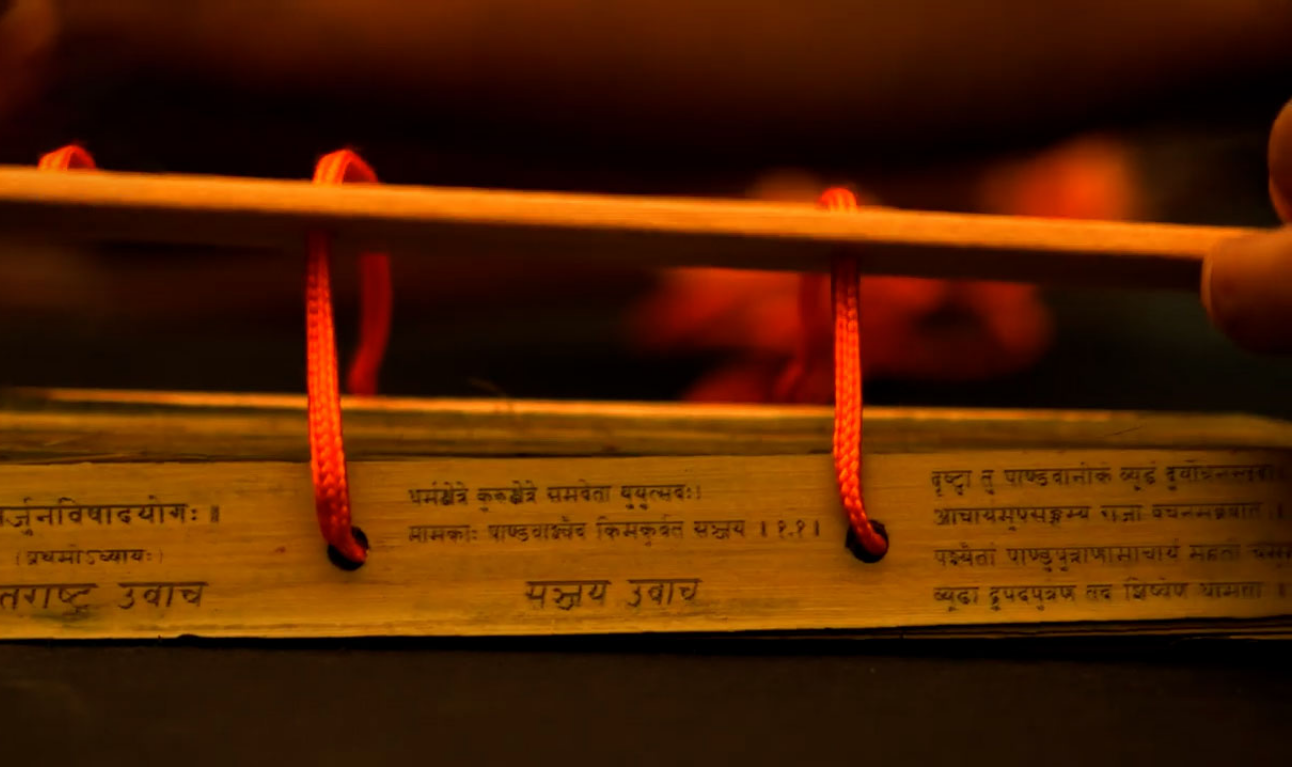 र्जुनविषादयोगः ॥
(प्रथमोऽध्यायः)
तराष्ट्र उवाच
धर्मक्षेत्रे कुरुक्षेत्रे समवेता युयुत्सवः।
मामकाः पाण्डवाश्चैव किमकुर्वत सञ्जय ।१.१।
सञ्जय उवाच
दृष्ट्वा तु पाण्डवानीकं व्यूढं दुर्योधनस्तदा
आचार्यमुपसङ्गम्य राजा वचनमब्रवीत ।
पश्यैतां पाण्डुपुत्राणामाचार्य महतीं
व्यूढां द्रुपदपुत्रेण तव शिष्येण धीमता ।